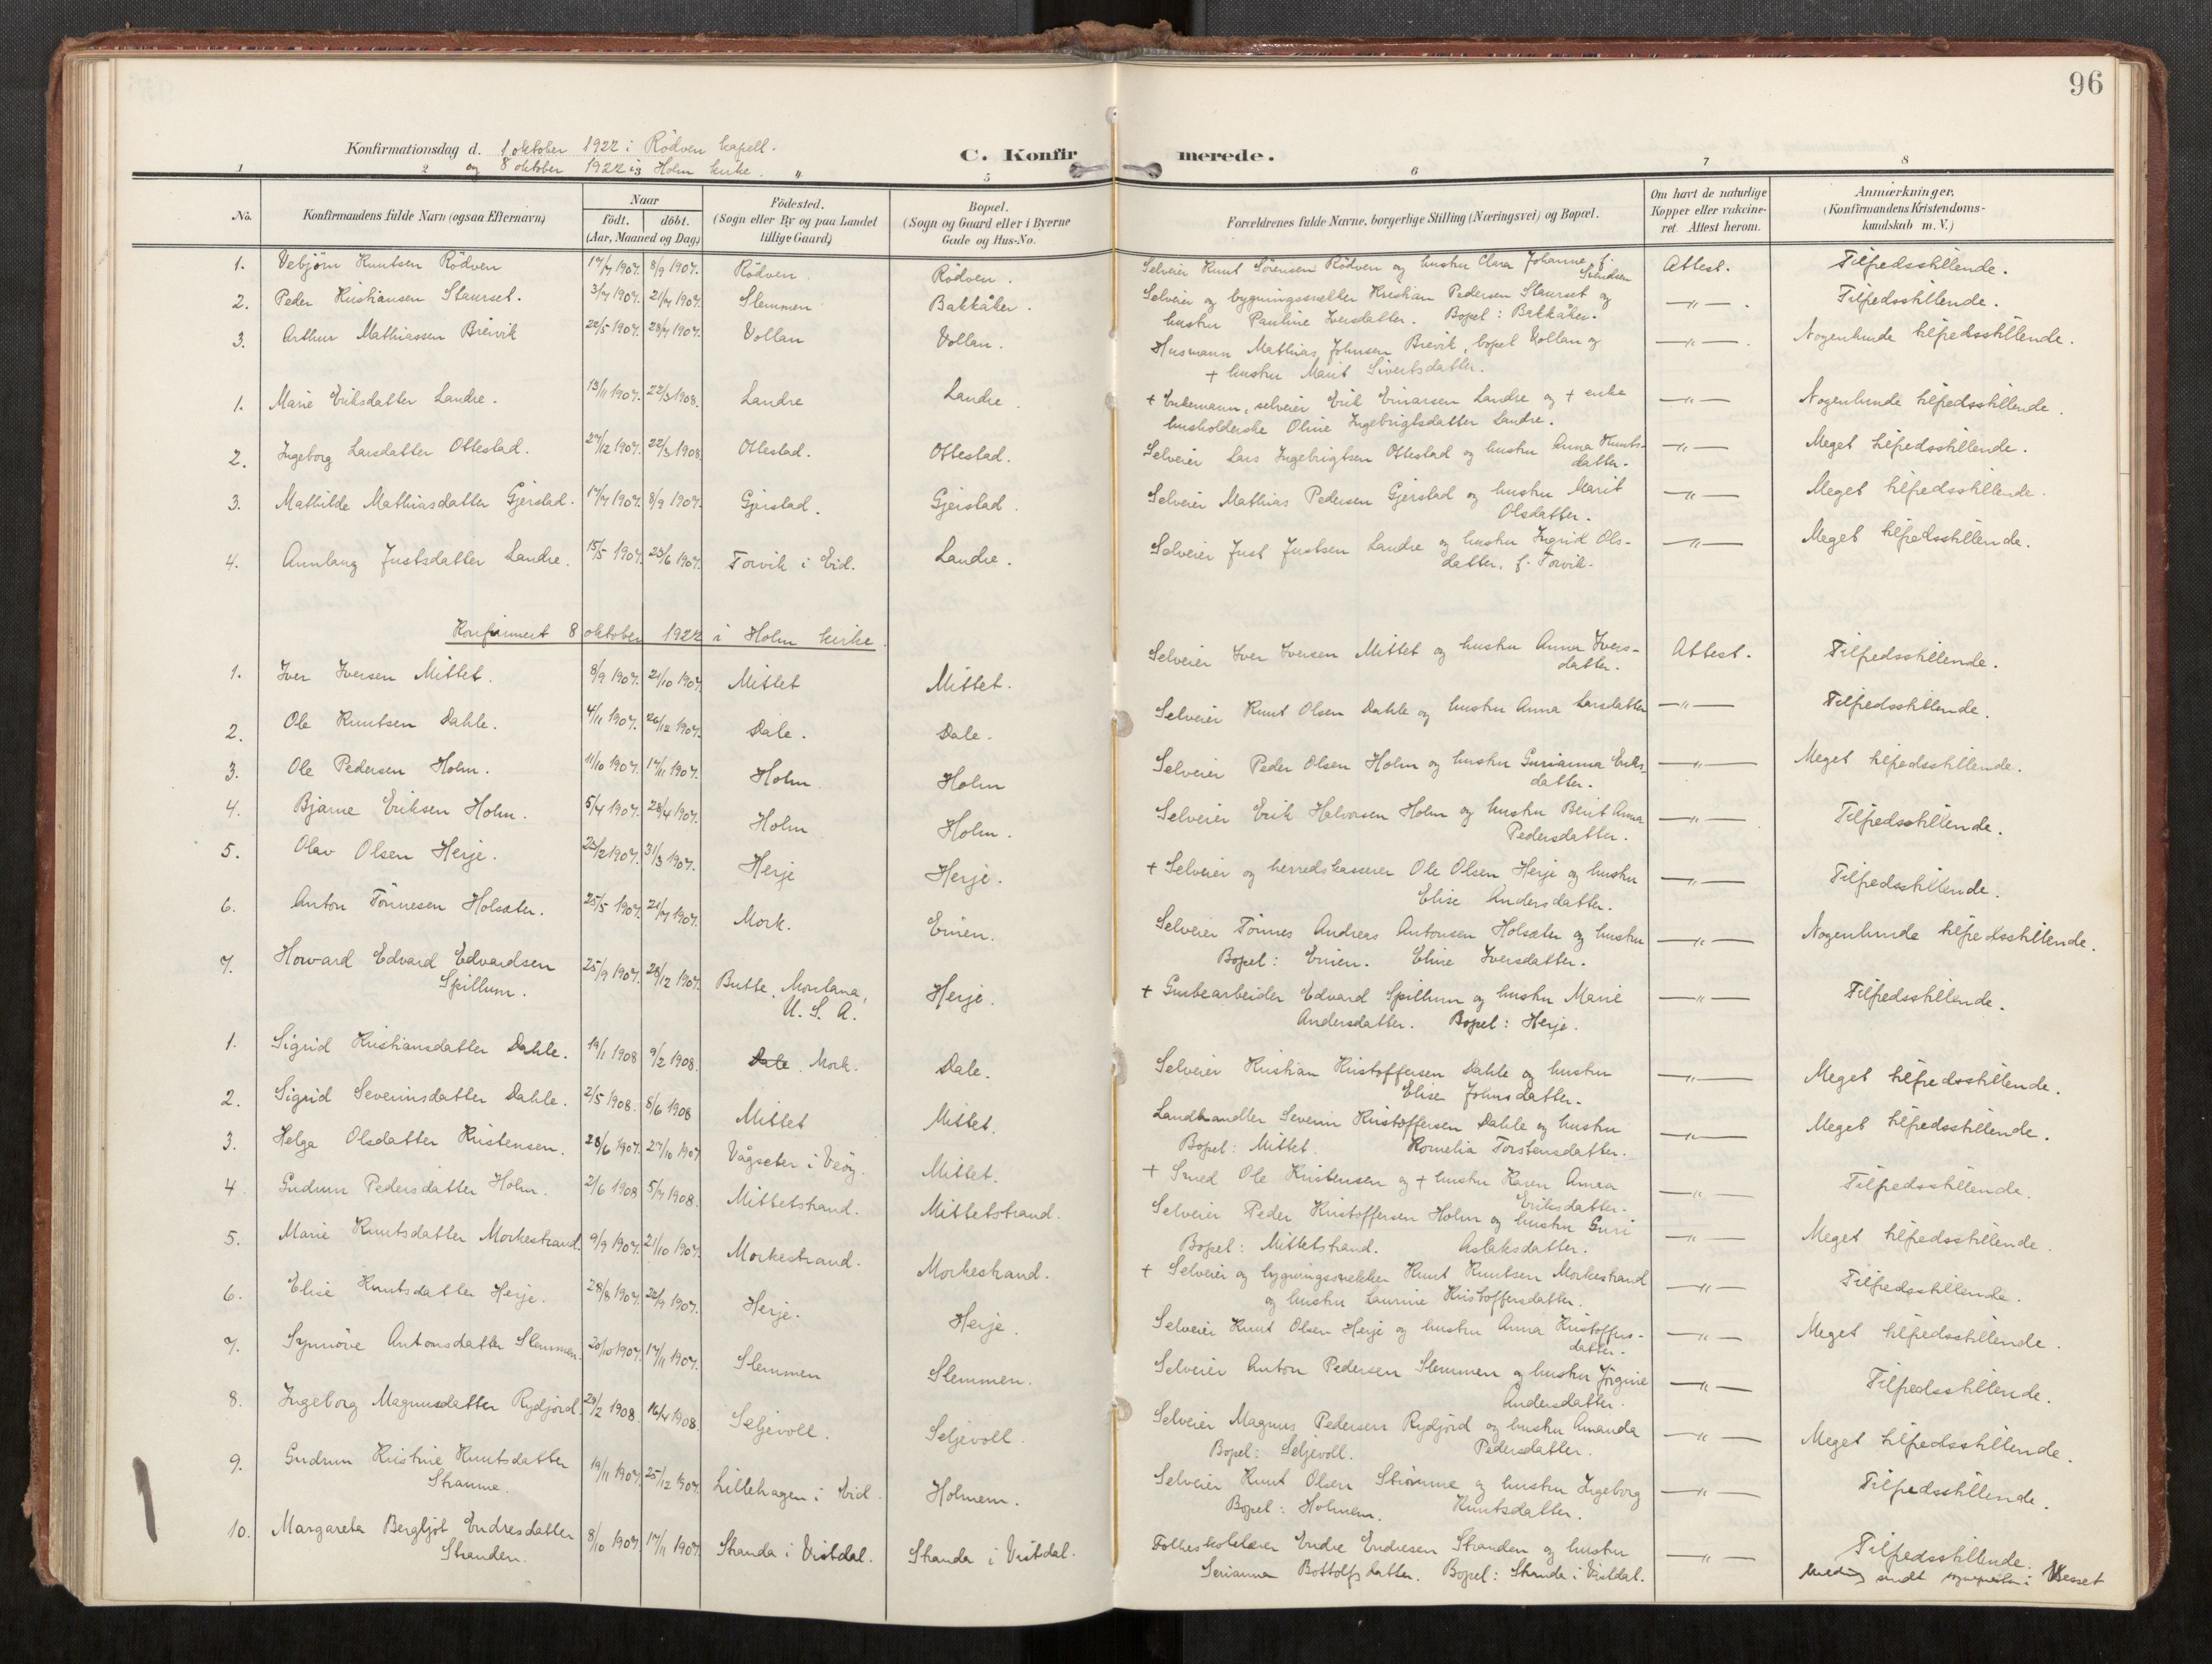 96
Konfirmationsdag d. 1 oktober 1922 i Rödven kapell.
og 8 oktober 1922 i Holm kirke.
C. Konfirmerede.
1 2 3 4 5 6 7 8
No. Konfirmandens fulde Navn (ogsaa Efternavn) Naar födt. döbt. (Aar, Maaned og Dag) Födested. (Sogn eller By og paa Landet tillige Gaard) Bopæl. (Sogn og Gaard eller i Byerne Gade og Hus-No. Forældrenes fulde Navne, borgerlige Stilling (Næringsvei) og Bopæl. Om havt de naturlige Kopper eller vakcineret. Attest herom. Anmærkninger. (Konfirmandens Kristendomskundskab m. V.)
1. Vebjörn Knutsen Rödven 17/7 1907. 8/9 1907. Rödven Rödven. Selveier Knut Sörensen Rödven og hustru Clara Johanne, f. Svendsen Attest. Tilfredsstillende.
2. Peder Kristiansen Staurset. 3/7 1907. 21/7 1907. Slemmen Bakkåker. Selveier og bygningssnekker Kristian Pedersen Staurset og
hustru Pauline Iversdatter. Bopel: Bakkåker. —"— . Tilfredsstillende.
3. Arthur Mathiassen Breivik 22/5 1907. 28/7 1907. Vollan Vollan. Husmann Mathias Johnsen Breivik, bopel Vollan og
+ hustru Marit Sivertsdatter. —"— . Nogenlunde tilfredsstillende.
1. Marie Eriksdatter Landre. 13/11 1907. 22/3 1908. Landre Landre. + Enkemann, selveier Erik Einarsen Landre og + enke
husholderske Oline Ingebrigtsdatter Landre. —"— Nogenlunde tilfredsstillende.
2. Ingeborg Larsdatter Ottestad. 27/12 1907. 22/3 1908. Ottestad. Ottestad. Selveier Lars Ingebrigtsen Ottestad og hustru Anna Knuts-
datter. —"— Meget tilfredsstillende.
3. Mathilde Mathiasdatter Gjerstad. 17/7 1907. 8/9 1907. Gjerstad. Gjerstad. Selveier Mathias Pedersen Gjerstad og hustru Marit
Olsdatter. —"— Meget tilfredsstillende.
4. Annlaug Justsdatter Landre. 15/5 1907. 23/6 1907. Torvik i Eid. Landre. Selveier Just Justsen Landre og hustru Ingrid Ols-
datter, f. Torvik. —"— Meget tilfredsstillende.
Konfirmert 8 oktober 1922 i Holm kirke.
1. Iver Iversen Mittet. 8/9 1907. 21/10 1907. Mittet Mittet. Selveier Iver Iversen Mittet og hustru Anna Ivers-
datter. Attest. Tilfredsstillende.
2. Ole Knutsen Dahle. 4/11 1907. 26/12 1907. Dale. Dale. Selveier Knut Olsen Dahle og hustru Anna Larsdatter —"— Tilfredsstillende.
3. Ole Pedersen Holm. 11/10 1907. 17/11 1907. Holm. Holm Selveier Peder Olsen Holm og hustru Gurianna Eriks-
datter. —"— Meget tilfredsstillende.
4. Bjarne Eriksen Holm. 5/4 1907. 28/4 1907. Holm Holm. Selveier Erik Halvorsen Holm og hustru Berit Anna
Pedersdatter. —"— Tilfredsstillende.
5. Olav Olsen Herje. 22/2 1907. 31/3 1907. Herje Herje. + Selveier og herredskasserer Ole Olsen Herje og hustru
Elise Andersdatter. —"— Tilfredsstillende.
6. Anton Tönnesen Holsæter. 25/5 1907. 21/7 1907. Mork. Einen. Selveier Tönnes Andreas Antonsen Holsæter og hustru
Bopel: Einen. Eline Iversdatter. —"— Nogenlunde tilfredsstillende.
7. Howard Edvard Edvardsen
Spillum. 25/9 1907. 28/12 1907. Butte, Montana,
U. S. A. Herje. + Grubearbeider Edvard Spillum og hustru Marie
Andersdatter. Bopel: Herje. —"— Tilfredsstillende.
1. Sigrid Kristiansdatter Dahle. 19/1 1908 9/2 1908. Dale. Mork. Dale. Selveier Kristian Kristoffersen Dahle og hustru
Elise Johnsdatter. —"— Meget tilfredsstillende.
2. Sigrid Severinsdatter Dahle. 2/5 1908. 8/6 1908 Mittet Mittet. Landhandler Severin Kristoffersen Dahle og hustru
Bopel: Mittet. Kornelia Torstensdatter. —"— Meget tilfredsstillende.
3. Helga Olsdatter Kristensen. 28/6 1907. 27/10 1907 Vågseter i Veöy. Mittet. + Smed Ole Kristensen og + hustru Karen Anna
Eriksdatter. —"— Tilfredsstillende.
4 Gudrun Pedersdatter Holm. 2/6 1908 5/7 1908. Mittetstrand. Mittetstrand. Selveier Peder Kristoffersen Holm og hustru Guri
Bopel: Mittetstrand. Aslaksdatter. —"— Meget tilfredsstillende.
5. Marie Knutsdatter Morkestrand. 9/9 1907. 21/10 1907. Morkestrand. Morkestrand. + Selveier og bygningssnekker Knut Knutsen Morkestrand
og hustru Laurine Kristoffersdatter. —"— Tilfredsstillende.
6. Elise Knutsdatter Herje. 28/8 1907. 22/9 1907. Herje. Herje. Selveier Knut Olsen Herje og hustru Anna Kristoffers-
datter. —"— Meget tilfredsstillende.
7. Synnöve Antonsdatter Slemmen. 20/10 1907. 17/11 1907. Slemmen Slemmen. Selveier Anton Pedersen Slemmen og hustru Jörgine
Andersdatter. —"— Tilfredsstillende.
8. Ingeborg Magnusdatter Rydjord. 29/2 1908. 16/4 1908. Seljevoll. Seljevoll. Selveier Magnus Pedersen Rydjord og hustru Amanda
Bopel: Seljevoll. Pedersdatter. —"— Meget tilfredsstillende.
9. Gudrun Kristine Knutsdatter
Straume. 19/11 1907. 25/12 1907. Lillehagen i Eid. Holmem. Selveier Knut Olsen Straume og hustru Ingeborg
Bopel: Holmem. Knutsdatter. —"— Tilfredsstillende.
10. Margareta Bergljot Endresdatter
Stranden. 8/10 1907. 17/11 1907. Stranda i Vistdal. Stranda i Vistdal. Folkeskolelærer Endre Endresen Stranden og hustru
Serianna Bottolfsdatter. Bopel: Stranda i Vistdal. —"— Tilfredsstillende.
Melding sendt sognepresten i Nesset